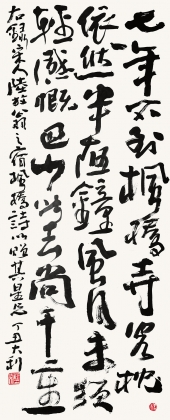 七年不到楓橋寺客枕
依然半夜鐘風月未須
輕感慨巴山此去尚千重
右錄宋人陸放翁之宿楓橋詩以 丁丑大利